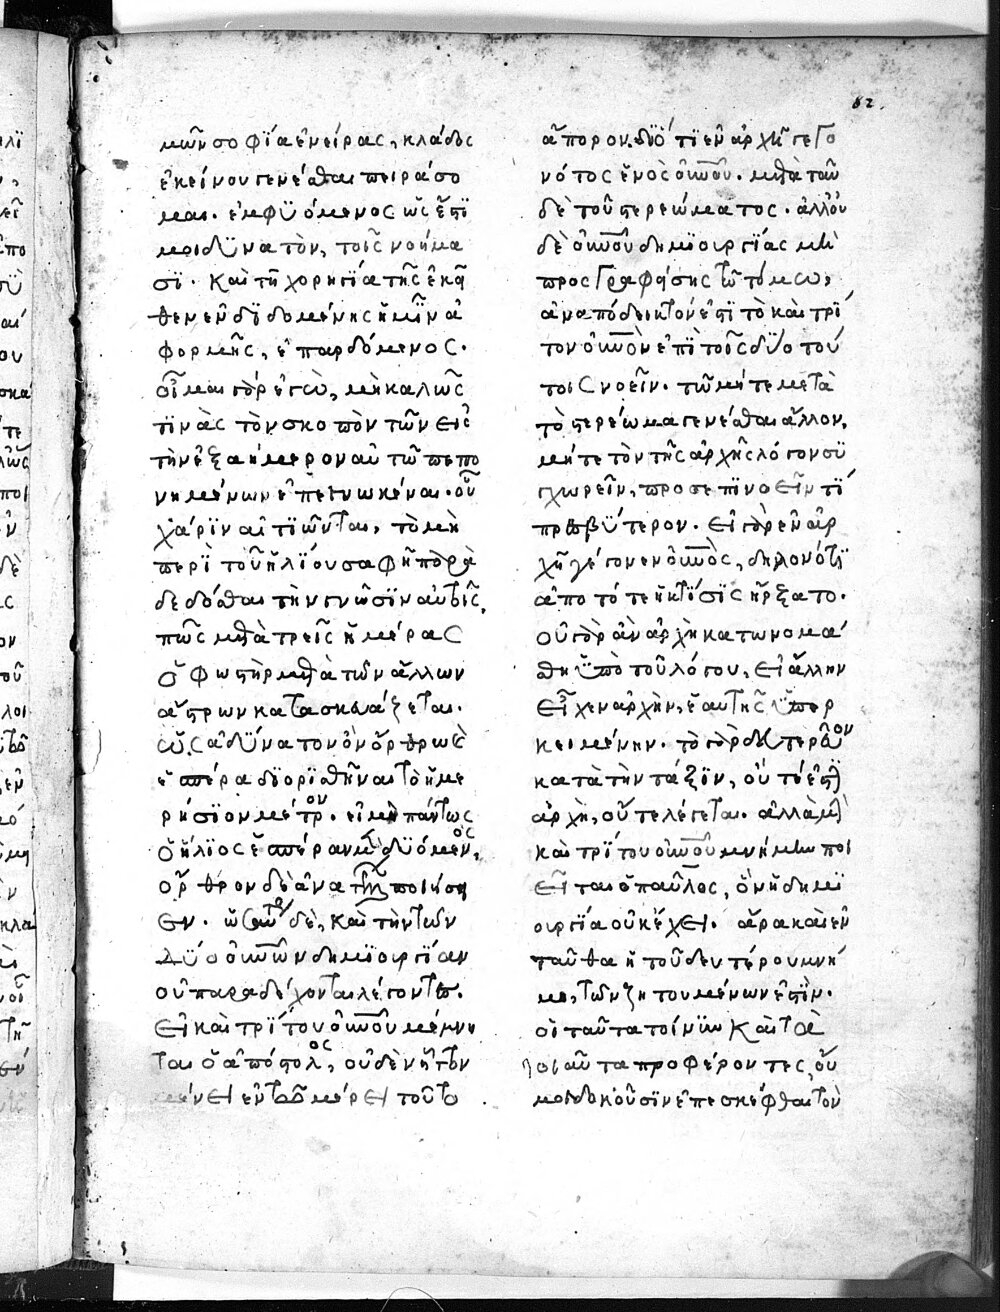 62.
μῶν σοφία ἐνείρας, κλάδος
ἐκείνου γενέσθαι πειράσο
μαι. ἐμφυόμενος ὡς ἔστι
μοι δυνατὸν, τοῖς νοήμα
σι. καὶ τῆ χορηγία τῆς ἐκεῖ
θεν ἐνδιδομένης ἡμῖν ἀ
φορμῆς, ἐπαρδόμενος.
οἶμαι γὰρ ἐγὼ, μὴ καλῶς
τινὰς τὸν σκοπὸν τῶν εἰς
τὴν ἑξαήμερον αὐτῶ πεπο
νημένων ἐπεγνωκέναι. οὗ
χάριν αἰτιῶνται, τὸ μὴ
περὶ τοῦ ἡλίου σαφῆ παρα
δεδόσθαι τὴν γνῶσιν αὐτοῖς,
πῶς μετὰ τρεῖς ἡμέρας
ὁ φωστὴρ μετὰ τῶν ἄλλων
ἄστρων κατασκευάζεται.
ὡς ἀδύνατον ὂν ὄρθρω καὶ
ἑσπέρα διορισθῆναι τὸ ἡμε
ρήσιον μέτρον. εἰ μὴ πάντως
ὁ ἥλιος ἑσπέραν μὲν δυόμενος,
ὄρθρον δὲ ἀνατέλλων ποιήσει
εν. ὡσαύτως δὲ, καὶ τὴν τῶν
δύο οὐρανῶν δημιουργίαν
οὐ παραδέχονται λέγοντες.
εἰ καὶ τρίτου οὐρανοῦ μέμνη
ται ὁ ἀπόστολος, οὐδὲν ἧττον
μένει ἐν τῶ μέρει τοῦτο
ἄπορον. διότι ἐν ἀρχῆ γεγο
νότος ἑνὸς οὐρανοῦ. μετὰ ταῦ
δὲ τοῦ στερεώματος. ἄλλου
δὲ οὐρανοῦ δημιουργίας μὴ
προσγραφείσης τῶ τόμω,
ἀναπόδεικτόν ἐστι τὸ καὶ τρί
τον οὐρανὸν ἐπὶ τοῖς δύο τού
τοις νοεῖν. τῶ μήτε μετὰ
τὸ στερέωμα γενέσθαι ἄλλον,
μήτε τὸν τῆς ἀρχῆς λόγον συ
γχωρεῖν, προσεπινοεῖν τί
πρεσβύτερον. εἰ γὰρ ἐν ἀρ
χῆ γέγονεν ὁ οὐρανὸς, δηλονότι
ἀπο τότε ἡ κτίσις ἤρξατο.
οὐ γὰρ ἂν ἀρχὴ κατωνομά
σθη ὑπὸ τοῦ λόγου, εἰ ἄλλην
εἶχεν ἀρχὴν, ἑαυτῆς ὑπερ
κειμένην. τὸ γὰρ δεύτερον ὂν
κατὰ τὴν τάξιν, οὔτέ ἐστιν
ἀρχὴ, οὔτε λέγεται. ἀλλὰ μὴν
καὶ τρίτου οὐρανοῦ μνήμην ποι
εῖται ὁ παῦλος, ὃν ἡ δημι
ουργία οὐκ ἔχει. ἄρα καὶ ἐν
ταῦθα ἡ τοῦ δευτέρου μνή
μη, τῶν ζητουμένων ἐστίν.
οἱ ταῦτα τοίνυν καὶ τὰ
τοιαῦτα προφέροντες, οὔ
μοι δοκοῦσιν ἐπεσκέφθαι τὸν